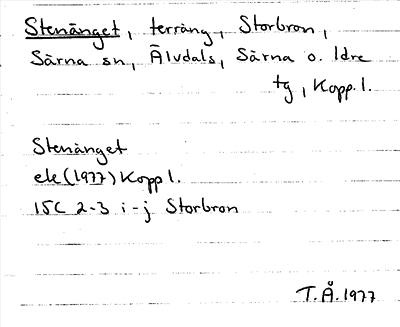 Stenänget, terräng, Storbron,
Särna sn, Älvdals, Särna o. Idre
tg, Kopp. l.
Stenänget
ek (1977) Kopp l.
15C 2-3 i-j Storbron
T.Å. 1977